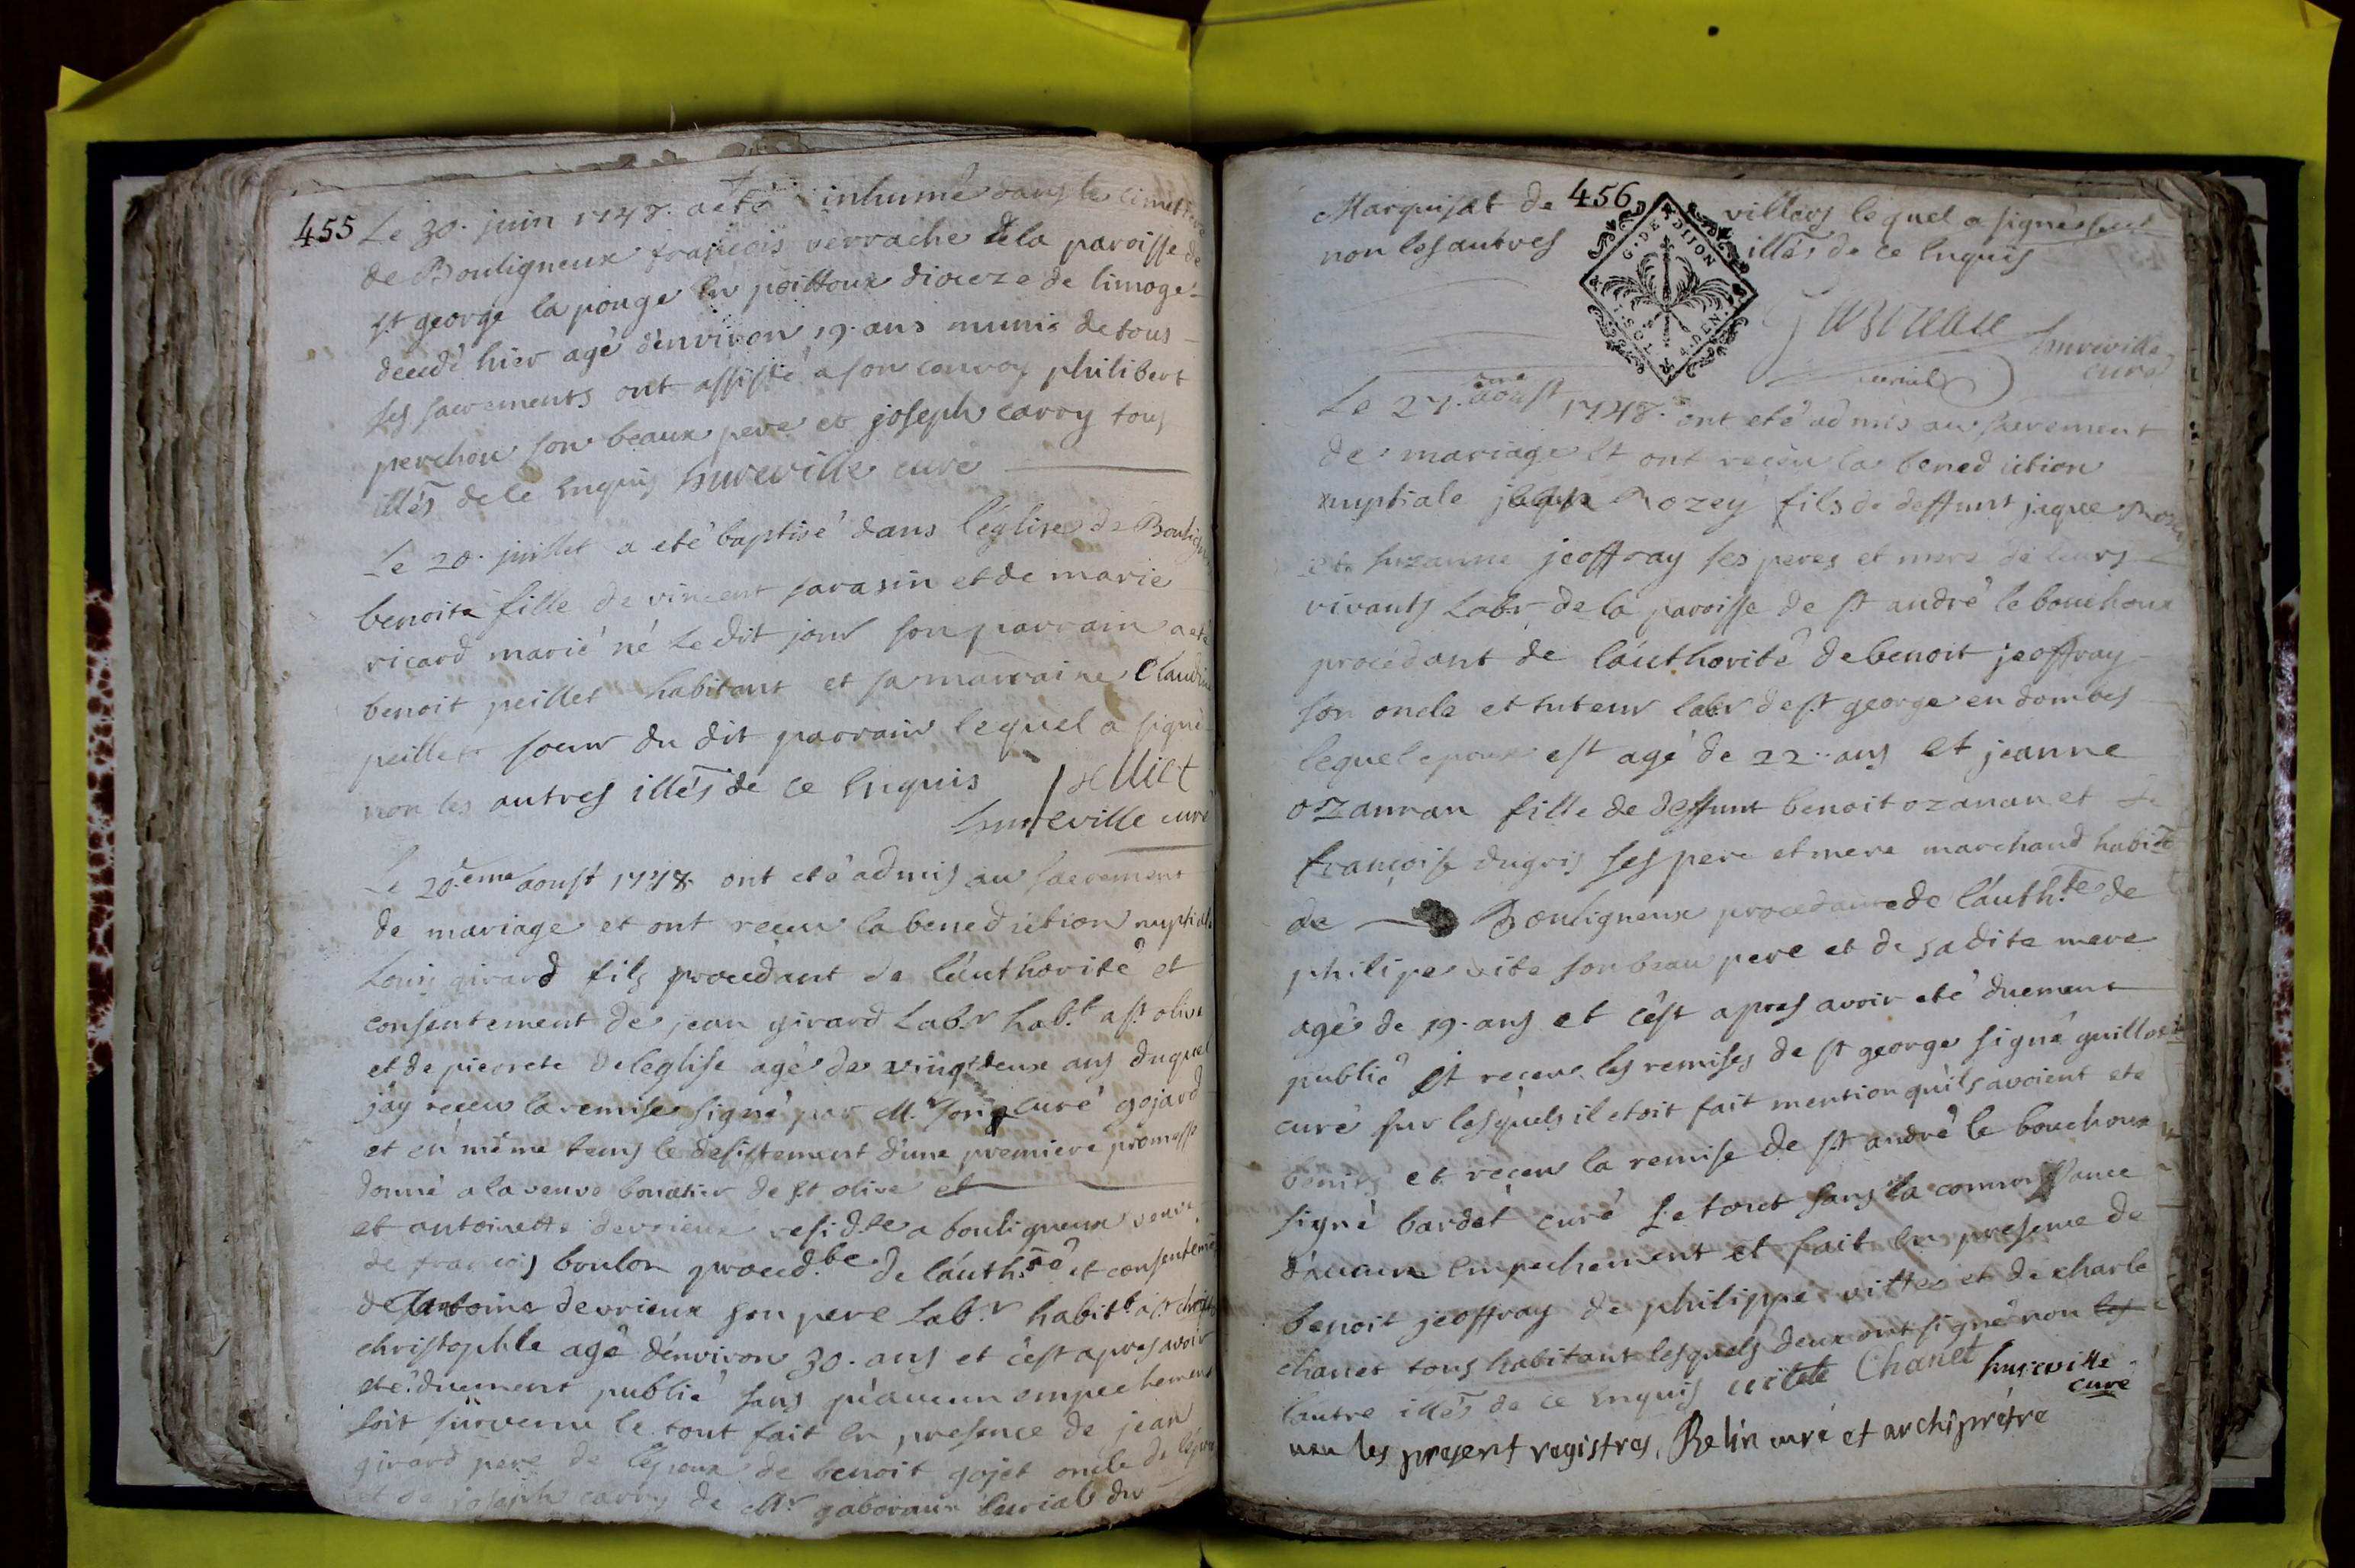 455
Le 30. juin 1748. a eté inhumé dans le cimettere
de Bouligneux françois verrache de la paroisse de
st george la pouge en poittoux dioceze de limoge
decedé hier agé d'environ 19. ans munis de tous
ses sacrements ont assisté a son convoy philibert
perchou son beaux pere et joseph carry tous
illés de ce enquis hureville curé
Le 20. juillet a eté baptisé dans l'église de Boulig
benoite fille de vincent sarasin et de marie
ricard marié né le dit jour son parrain a eté
benoit peillet habitant et sa marraine Claudine
peillet soeur du dit parrain lequel a signé
non les autres illés de ce enquis peillet
hureville curé
Le 20.eme aoust 1748. ont eté admis au sacrement
de mariage et ont receu la benediction nuptiale
Louis girard fils procedant de l'authorité et
consentement de jean girard Lab.r hab.t a st olive
et de pierrete deleglise agé de vingtdeux ans duquel
j'ay receu la remise signé par M.r curé gojard
et en même tems le desistement d'une premiere promesse
donné a la veuve bouchier de st olive et
et antoinette devrieux resid.te a bouligneux veuve
de françois boulon proced.te de l'auth.té et consenteme
de antoine devrieux son pere Lab.r habit.t a st
christophle agé d'environ 30. ans et c'est apres avoir
eté duement publié sans qu'aucun empechement
soit survenu le tout fait en presence de jean
girard pere de l'epoux de benoit gojet oncle de l'epou
et de joseph carry de Mr gaboraux curial du
456
Marquisat de villars lequel a signé seul
non les autres illés de ce enquis
G. DE. DIJON
hureville
curé
curial
Le 27.eme aoust 1748. ont eté admis au sacrement
de mariage et ont receu la benediction
nuptiale Rozey fils de deffunt jaque Rozey
et de suzanne jeoffray ses peres et mere de leurs
vivants Lab.r de la paroisse de st andré le bouchoux
procedant de l'authorité de benoit jeoffray
son oncle et tuteur lab.r de st george en dombes
lequel epoux est agé de 22. ans et jeanne
ozannan fille de deffunt benoit ozanan et de
françoise dugris ses pere et mere marchand habit
de Bouligneux procedante de l'auth.te de
philipe vite son beau pere et de sa dite mere
agé de 19. ans et c'est apres avoir eté duement
publié et receu les remises de st george signé guillot
curé sur lesquels il etoit fait mention qu'ils avoient eté
benits et receu la remise de st andré le bouchoux
signé bardet curé le tout sans la connoissance
d'aucun empechement et fait en presence de
benoit jeoffray de philippe vitte et de charle
chanet tous habitant lesquels deux ont signé non les
l'autre illés de ce enquis vitte Chanet hureville
curé
veu les present registres. Belin curé et archiprêtre